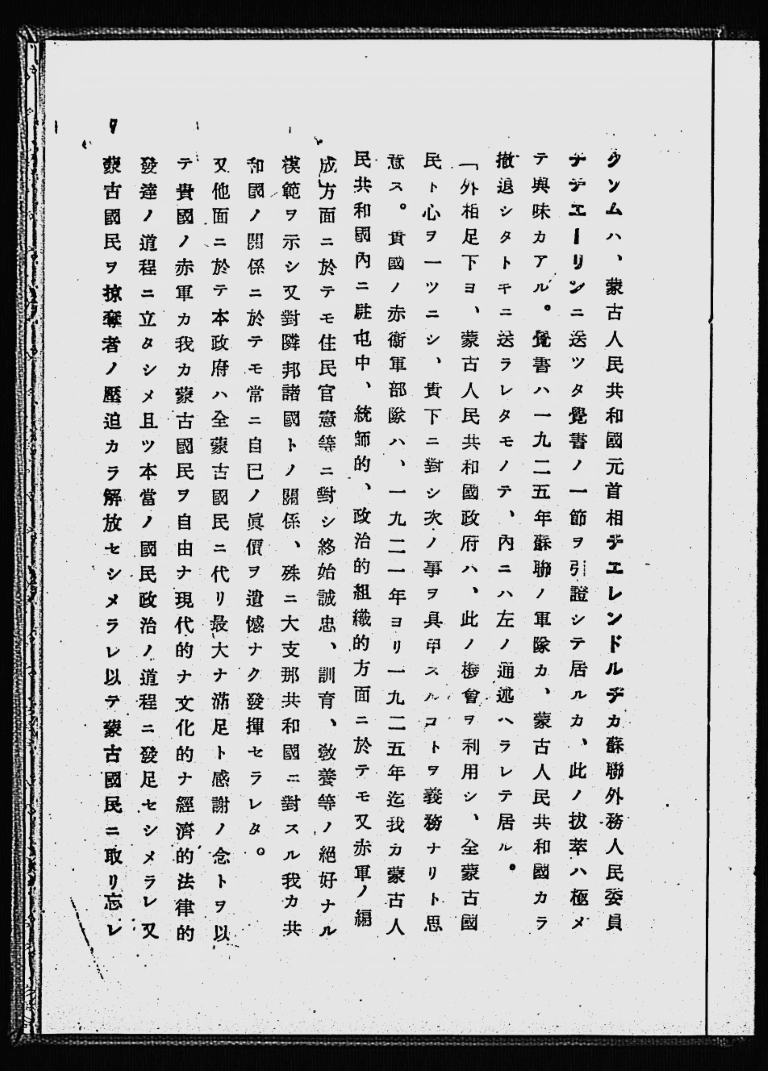 クソムハ、蒙古人民共和國元首相チエレンドルヂカ蘇聯外務人民委員
チチエーリンニ送ツタ覺書ノ一節ヲ引證シテ居ルカ、此ノ拔萃ハ極メ
テ興味カアル。覺書ハ一九二五年蘇聯ノ軍隊カ、蒙古人民共和國カラ
撤退シタトキニ送ラレタモノテ、內ニハ左ノ通述ヘラレテ居ル。
「外相足下ヨ、蒙古人民共和國政府ハ、此ノ機會ヲ利用シ、全蒙古國
民ト心ヲ一ツニシ、貴下ニ對シ次ノ事ヲ具申スルコトヲ義務ナリト思
意ス。貴國ノ赤衞軍部隊ハ、一九二一年ヨリ一九二五年迄我カ蒙古人
民共和國內ニ駐屯中、統帥的、政治的組織的方面ニ於テモ又赤軍ノ編
成方面ニ於テモ住民官憲等ニ對シ終始誠忠、訓育、敎養等ノ絕好ナル
模範ヲ示シ又對隣邦諸國トノ關係、殊ニ大支那共和國ニ對スル我カ共
和國ノ關係ニ於テモ常ニ自己ノ眞價ヲ遺憾ナク發揮セラレタ。
又他面ニ於テ本政府ハ全蒙古國民ニ代リ最大ナ滿足ト感謝ノ念トヲ以
テ貴國ノ赤軍カ我カ蒙古國民ヲ自由ナ現代的ナ文化的ナ經濟的法律的
發達ノ道程ニ立タシメ且ツ本當ノ國民政治ノ道程ニ發足セシメラレ又
蒙古國民ヲ掠奪者ノ壓迫カラ解放セシメラレ以テ蒙古國民ニ取リ忘レ